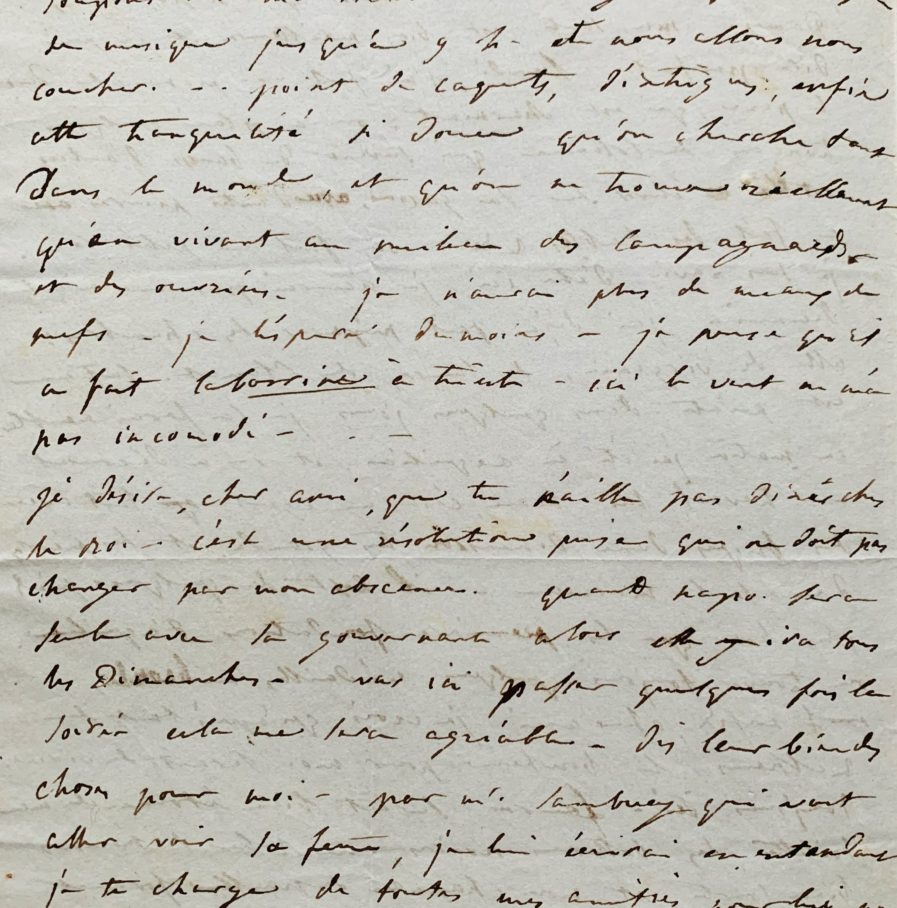 de musique jusqu'à 9 h- et nous allons nous
coucher. - . point de caquets, d'intrigues, enfin
cette tranquilité si douce qu'on cherche tant
Dans le monde, et qu'on ne trouve réellement
qu'en vivant au milieu des Campagnards
et des ouvriers. je n'aurai plus de meaux de
nefs - je l'esperai du moins - je pense qu'il
a fait la borrine à trieste - ici le vent ne m'a
pas incomodé - . -
je désire, cher ami, que tu n'aille pas diner chez
le roi - c'est une résolution prise qui ne doit pas
changer par mon abscence. quand napo. sera
seule avec sa gouvernante alors elle y ira tous
les Dimanches - vas ici passer quelques fois la
soirée cela me sera agréable - dis leur bien des
choses pour moi - par mr. Sambucy qui vont
aller voir sa feme, je lui écrirai en entendant
je te charge de toutes mes amitiés pour lui